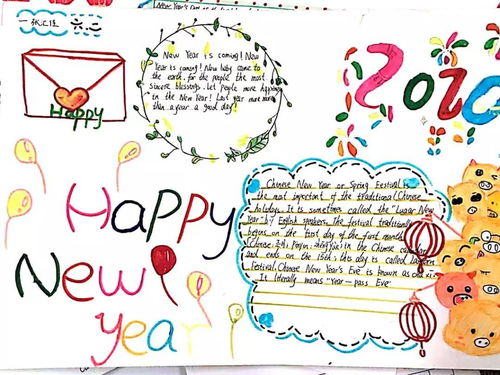 Happy
New Year is coming! New
Year is coming! New baby come to
the earth, for the people the most
sincere blessings. Let people more happy
in the New Year! Last year more more
than a year a good day!
Happy
New
year
Chinese New Year or Spring Festival is
the most important of the traditional Chinese
holidays. It is sometimes called the "Lunar New
Year" by English speakers, the festival traditionally
begins on the first day of the first month
Chinese: pinyin: in the Chinese
and ends on the 15th; this day is called
Festival. Chinese New Year's Eve is known as
It literally means "Year-pass Eve"